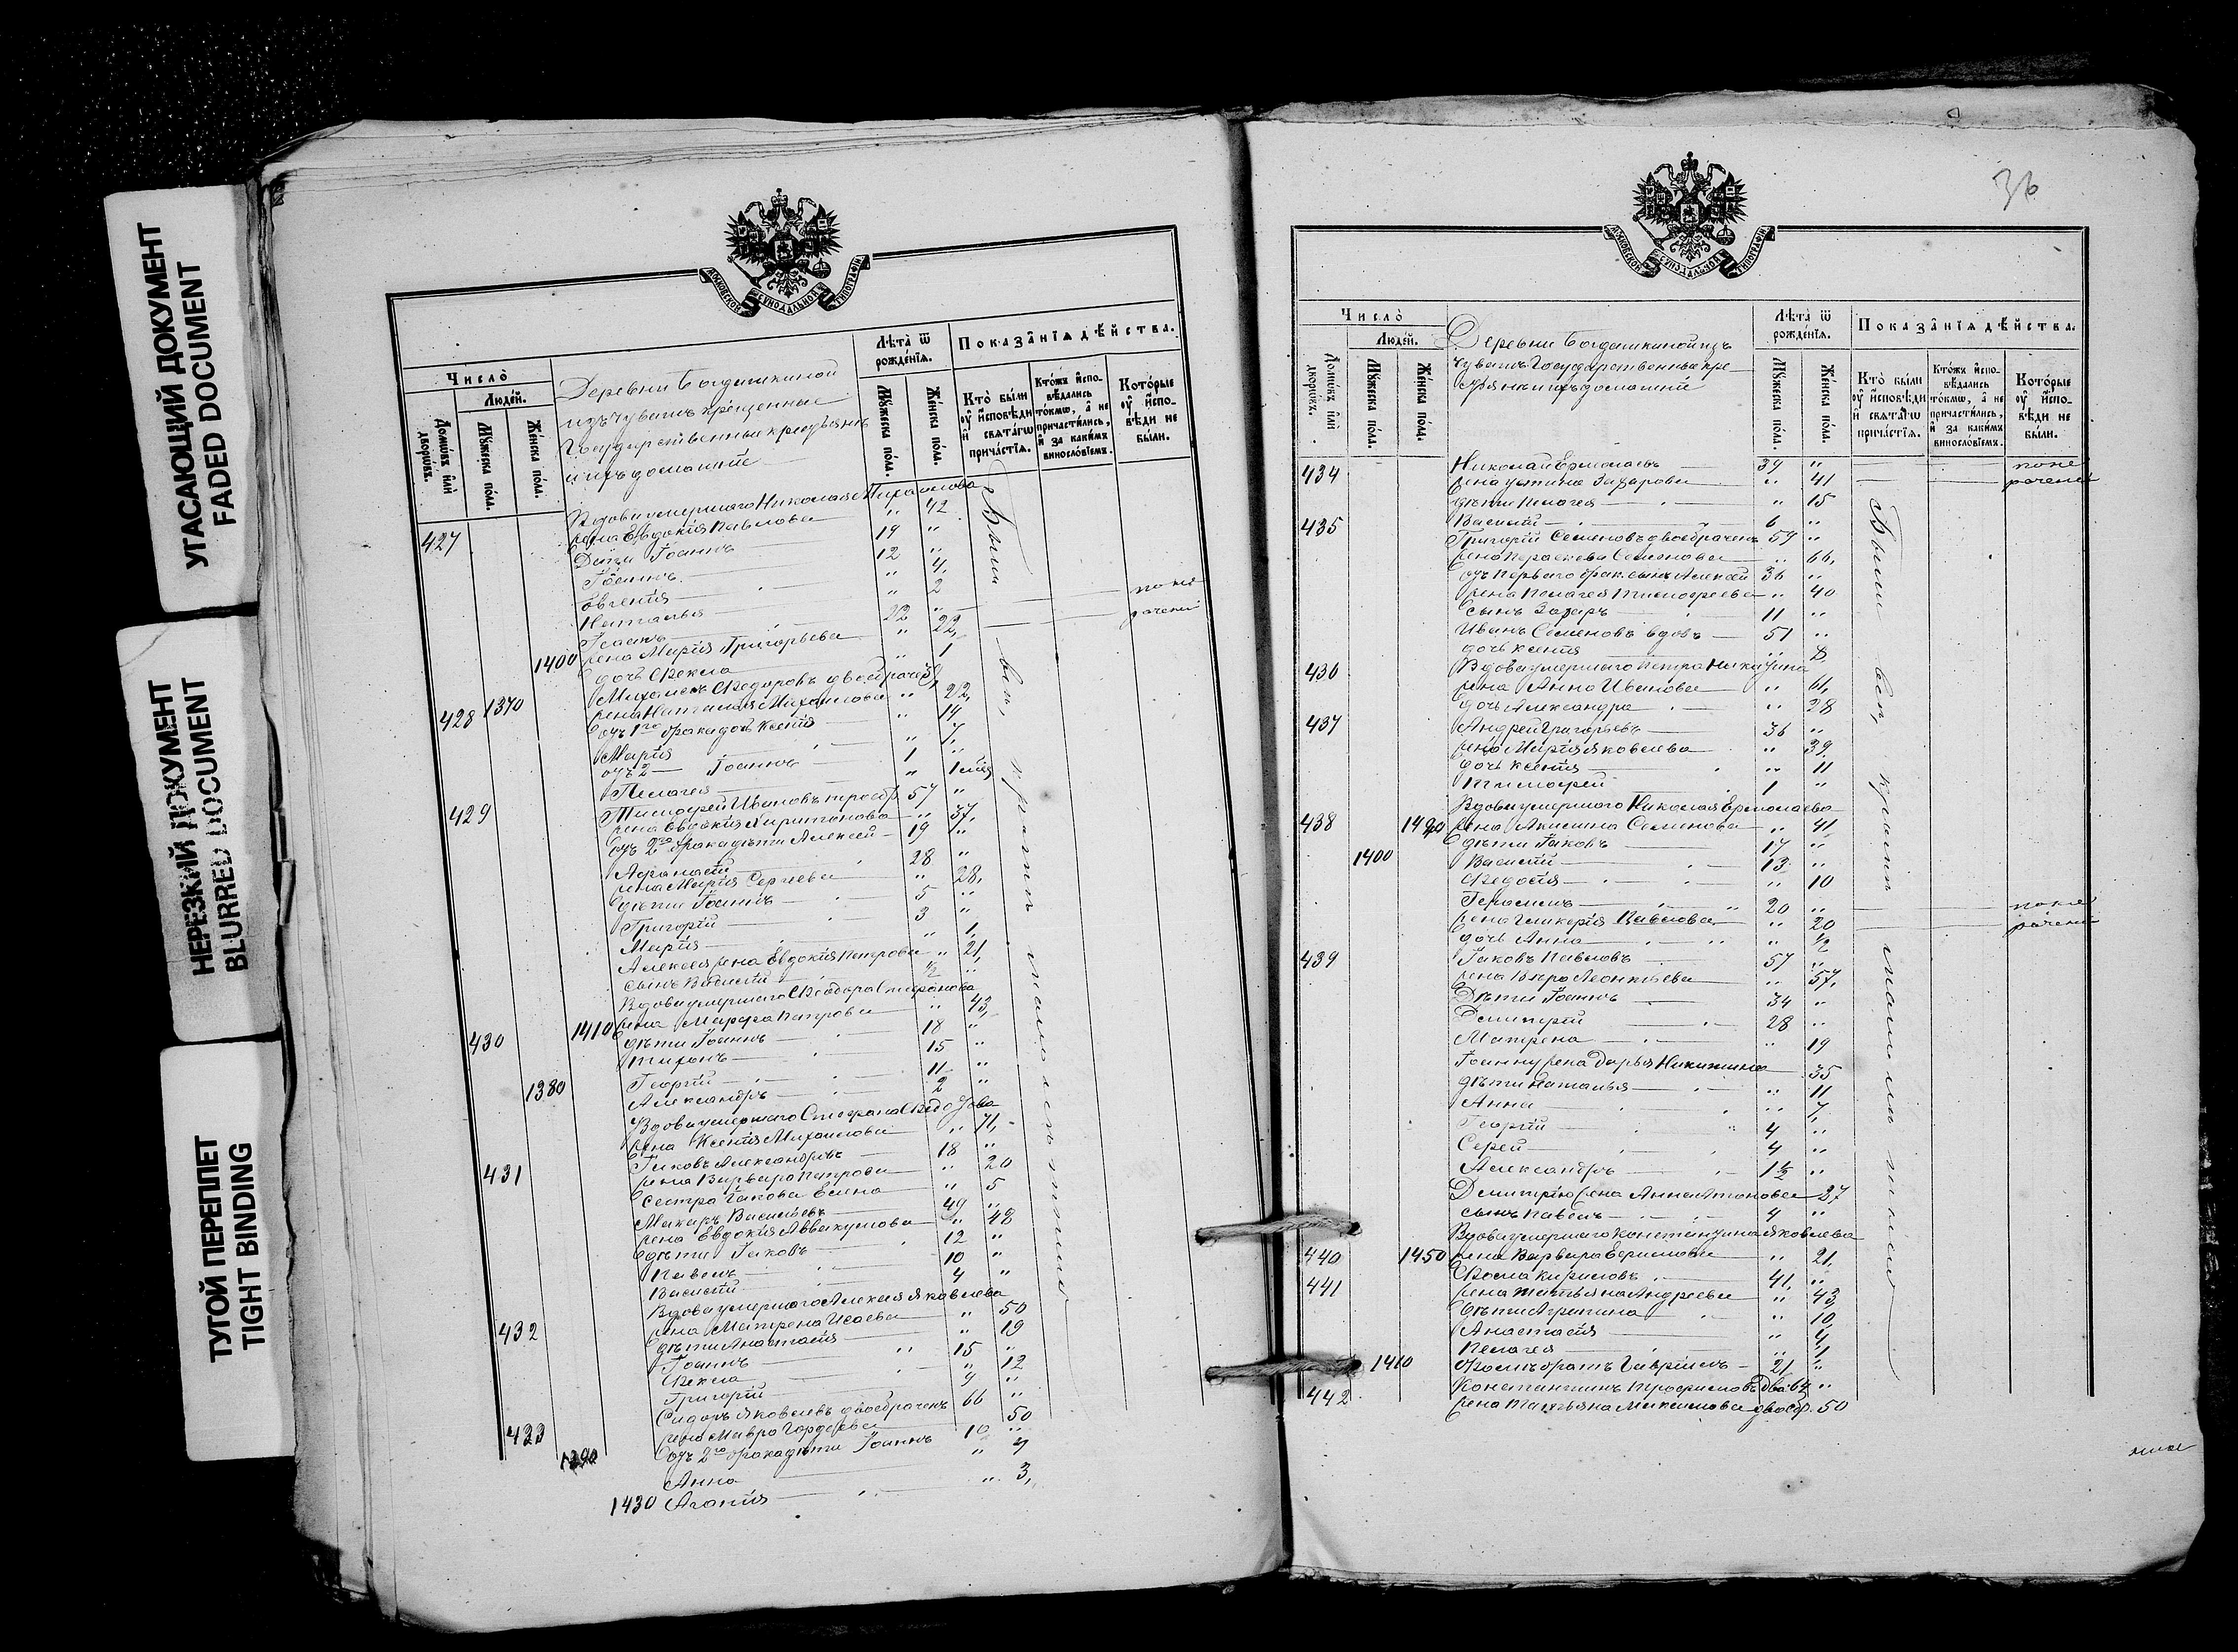 УГАСАЮЩИЙ ДОКУМЕНТ
FADED DOCUMENT
НЕРЕЗКИЙ ДОКУМЕНТ
BLURRED DOCUMENT
ТУГОЙ ПЕРЕПЛЕТ
TIGHT BINDING
МОСКОВСКОЙ СѴНОДАЛЬНОЙ ТИПОГРАФІИ
Число̀
Людéй.
Домѡ́въ и҆лѝ дворѡ́въ.
Мꙋ́жеска по́ла.
Же́нска по́ла.
Деревни Богдашкиной
изъ Чувашъ крещенные
Государственные крестьянъ
и ихъ домашніе
Лѣта̀ ѿ рождéнїѧ.
Мꙋ́жеска по́ла.
Же́нска по́ла.
Показáнїѧ дѣ́йства.
Кто̀ бы́ли оу҆ и҆́сповѣди и҆ свѧта́гѡ прича́стїѧ.
Кто́жъ и҆сповѣ́дались то́кмѡ, а҆ не причасти́лись, и҆ за каки́мъ винослóвїемъ.
Кото́рые оу҆ и҆́сповѣди не бы́ли.
Вдова умершаго Николая Михаилова
427 жена Евдокія Павлова " 42
Дѣти Іоаннъ 19 "
Іоаннъ 12 "
Евгенія " 4
Наталья " 2
Исаакъ 22 "
1400 жена Марія Григорьева " 22
дочь Ѳекла " 1
428 1370 Михаилъ Ѳедоровъ двоебрач
жена Наталия Михаилова " 22
отъ 1го брака дочь Ксенія " 14
Марія " 7
отъ 2 Іоаннъ 1 "
Пелагея " 1
429 Тимофей Ивановъ троебр 57 "
жена Евдокія Харитонова " 37
отъ 2го брака дѣти Алексей 19 "
Афанасій 28 "
жена Марія Сергеева " 28
дѣти Іоаннъ 5 "
Григорій 3 "
Марія " 1
Алексея жена Евдокія Петрова " 21
сынъ Василій ½ "
Вдова умершаго Ѳеодора Стефанова
430 1410 жена Марфа Петрова " 43
дѣти Іоаннъ 18 "
Тихонъ 15 "
1380 Георгій 11 "
Александръ 2 "
Вдова умершаго Стефана Ѳедорова
жена Ксенія Михаилова " 71
431 Іаковъ Александровъ 18 "
жена Варвара Петрова " 20
Сестра Іакова Елена " 5
Макаръ Васильевъ 49 "
жена Евдокія Аввакумова " 48
дѣти Іаковъ 12 "
Павелъ 10 "
Василій 4 "
Вдова умершаго Алексея Яковлева
432 жена Матрена Исаева " 50
дѣти Анастасія " 19
Іоаннъ 15 "
Ѳекла " 12
Григорій 9 "
433 Сидоръ Яковлевъ двоебраченъ 66 "
жена Мавра Гордеева " 50
1390 отъ 2го брака дѣти Іоаннъ 10 "
Анна " 7
1430 Агапія " 3
Были
вси
кромѣ
малолетнихъ
36
МОСКОВСКОЙ СѴНОДАЛЬНОЙ ТИПОГРАФІИ
Число̀
Людéй.
Домѡ́въ и҆лѝ дворѡ́въ.
Мꙋ́жеска по́ла.
Же́нска по́ла.
Деревни Богдашкиной изъ
Чувашъ Государственные кре
стьянки ихъ домашніе
Лѣта̀ ѿ рождéнїѧ.
Мꙋ́жеска по́ла.
Же́нска по́ла.
Показáнїѧ дѣ́йства.
Кто̀ бы́ли оу҆ и҆́сповѣди и҆ свѧта́гѡ прича́стїѧ.
Кто́жъ и҆сповѣ́дались то́кмѡ, а҆ не причасти́лись, и҆ за каки́мъ винослóвїемъ.
Кото́рые оу҆ и҆́сповѣди не бы́ли.
434 Николай Ермолаевъ 39 "
жена Устина Захарова " 41
дѣти Пелагея " 15
435 Василій 6 "
Григорій Семеновъ двоебраченъ 59 "
жена Параскева Семенова " 66
отъ перваго брака сынъ Алексей 36 "
жена Пелагея Тимофеева " 40
сынъ Захаръ 11 "
Иванъ Семеновъ вдовъ 51 "
дочь Ксенія " 8
436 Вдова умершаго Петра Никитина
жена Анна Иванова " 61
дочь Александра " 28
437 Андрей Григорьевъ 36 "
жена Марія Яковлева " 39
дочь Ксенія " 11
Тимофей 1 "
Вдова умершаго Николая Ермолаева
438 1440 жена Акилина Семенова " 41
дѣти Іаковъ 17 "
1400 Василій 13 "
Ѳедосія " 10
Герасимъ 20 "
жена Гликерія Павлова " 20
дочь Анна " ½
439 Іаковъ Павловъ 57 "
жена Вѣра Леонтьева " 57
Дѣти Іоаннъ 34 "
Димитрій 28 "
Матрена " 19
Іоанну жена Дарья Никитина 35
дѣти Наталья " 11
Анна " 7
Георгій 4 "
Сергй 4 "
Александръ 1½ "
Димитрію жена Анна Антонова 27
сынъ Павелъ 4 "
Вдова умершаго Константина Яковлева
440 1450 жена Варвара Ермилова " 21
441 Ѳома Кириловъ 41 "
жена Татьяна Андреева " 43
дѣти Агрипина " 10
Анастасія " 4
Пелагея " 1
1410 Ѳомы братъ Гавріилъ 21 "
442 Константинъ Трофимовъ дво 64 "
жена Татьяна Максимова двоебр. 50
Были
вси
кромѣ